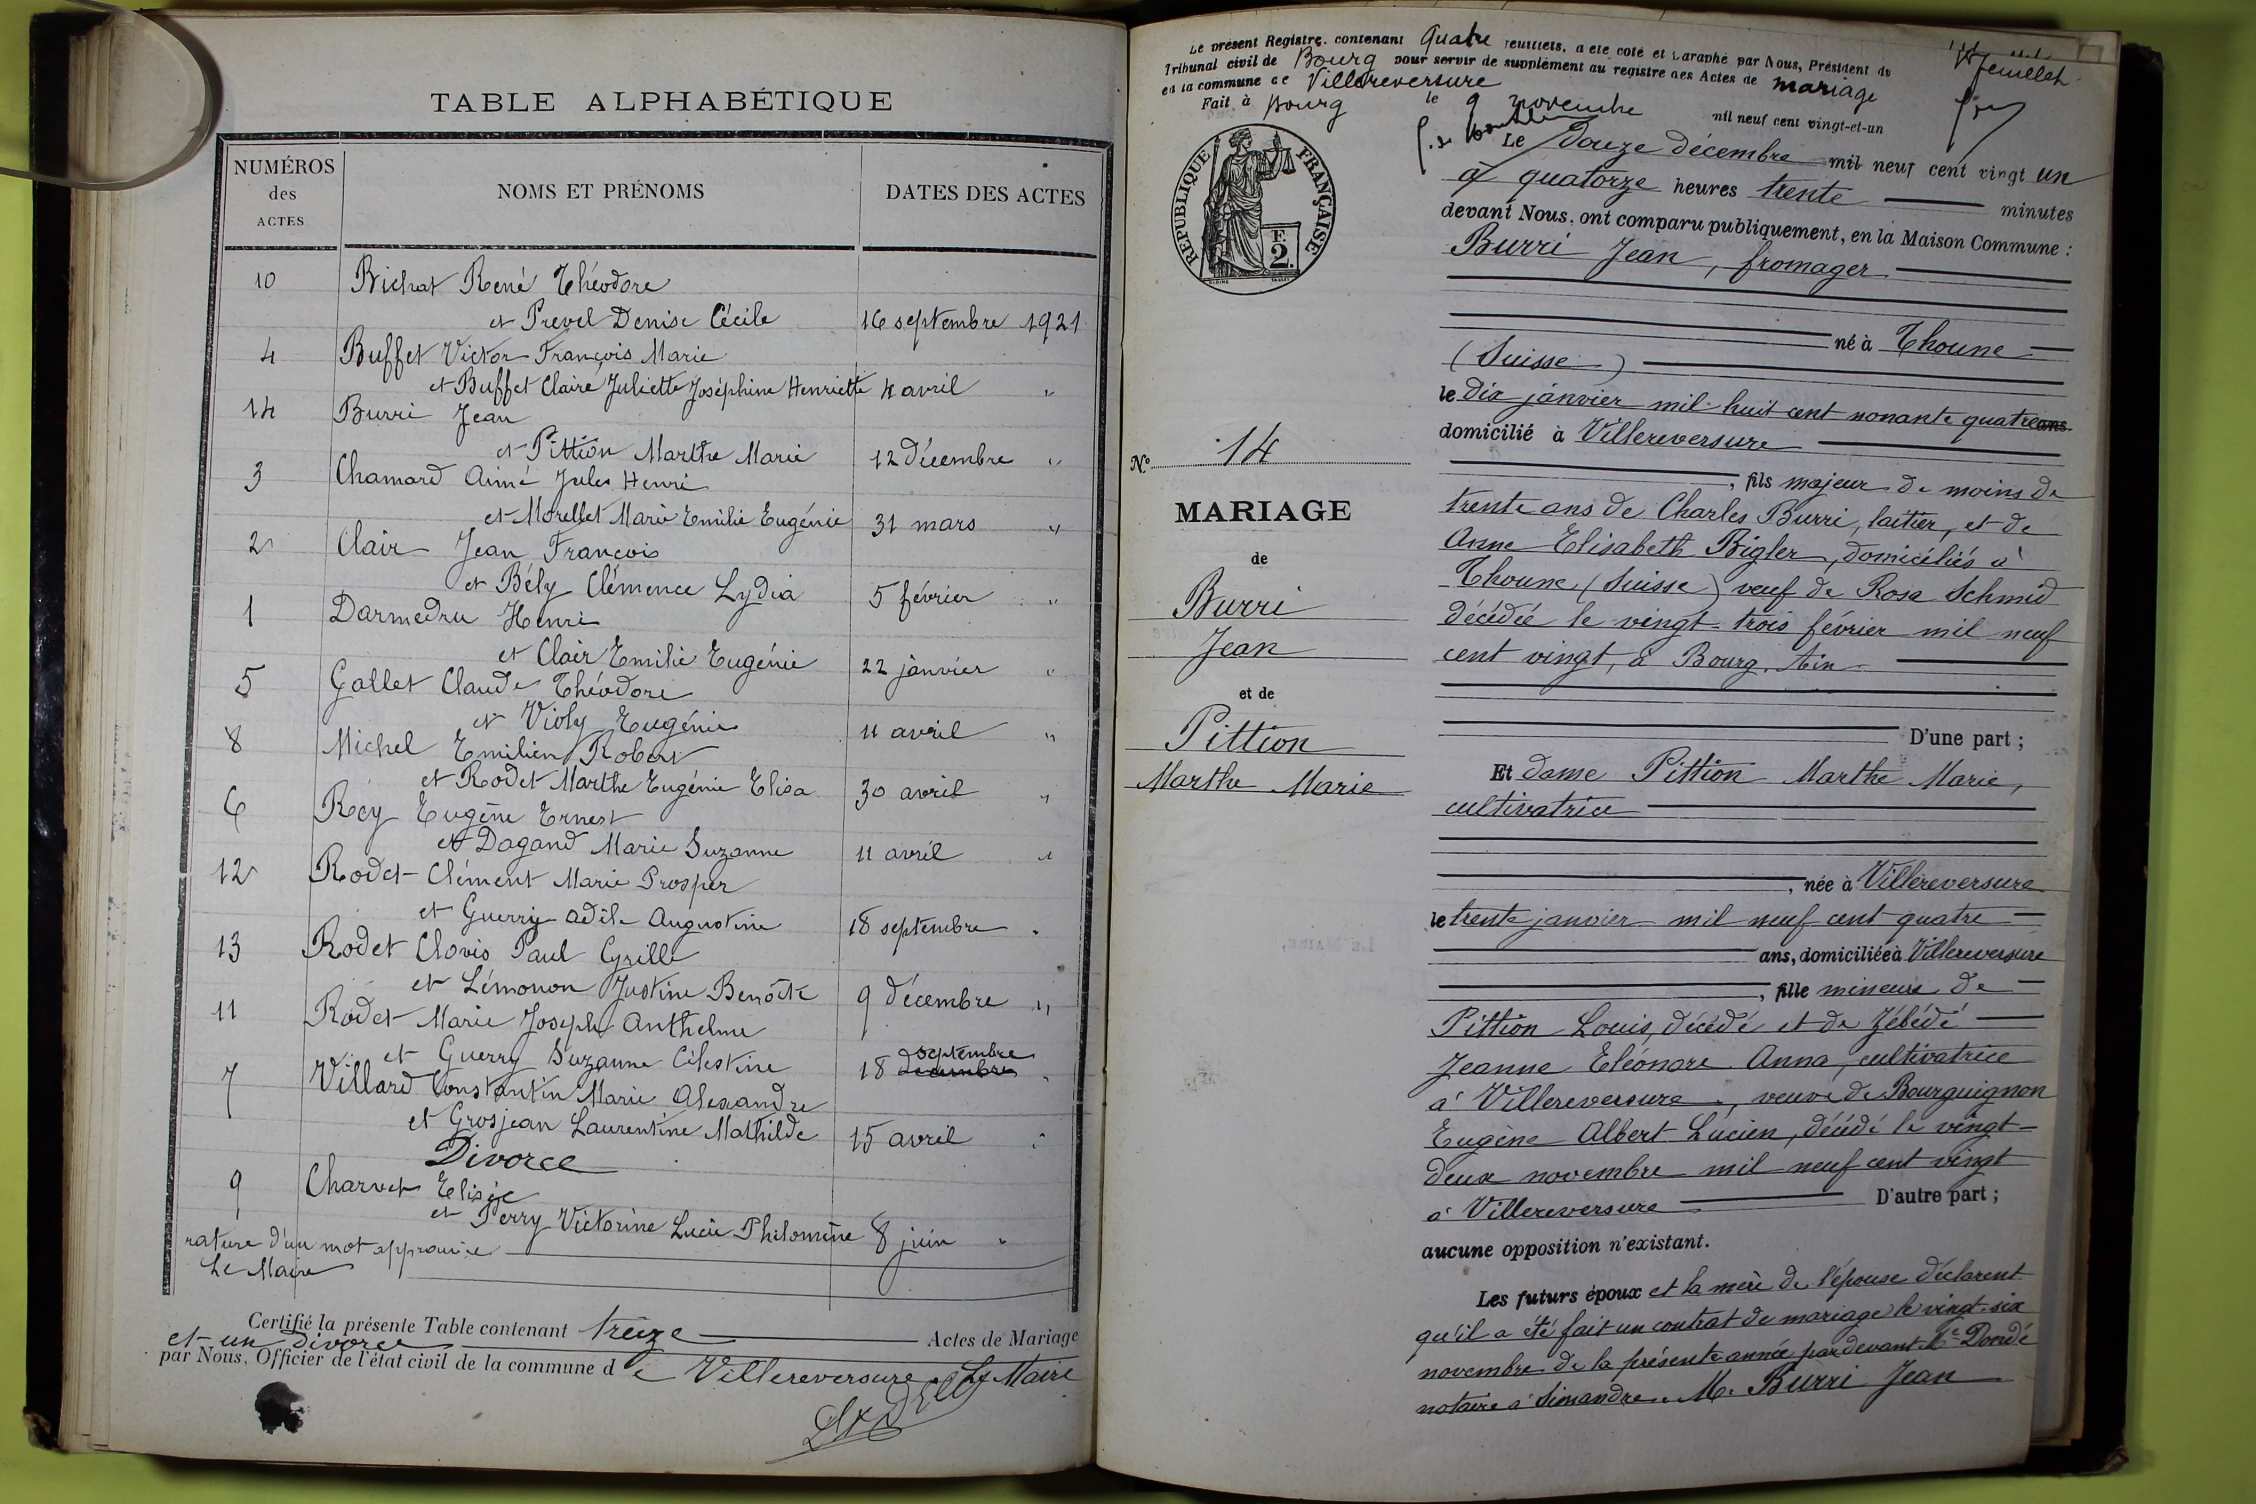 TABLE ALPHABÉTIQUE
NUMÉROS des ACTES
NOMS ET PRÉNOMS
DATES DES ACTES
10 Bichat René Théodore
et Prevel Denise Cécile 16 septembre 1921
4 Buffet Victor François Marie
et Buffet Claire Juliette Joséphine Henriette 4 avril "
14 Burri Jean
et Pittion Marthe Marie 12 décembre "
3 Chamard Aimé Jules Henri
et Morellet Marie Emilie Eugénie 31 mars "
2 Clair Jean François
et Bély Clémence Lydia 5 février "
1 Darmedru Henri
et Clair Emilie Eugénie 22 janvier "
5 Gallet Claude Théodore
et Violy Eugénie 11 avril "
8 Michel Emilien Robert
et Rodet Marthe Eugénie Elisa 30 avril "
6 Réy Eugène Ernest
et Dagand Marie Suzanne 11 avril "
12 Rodet Clément Marie Prosper
et Guerry Adèle Augustine 18 septembre "
13 Rodet Clovis Paul Cyrille
et Lémonon Justine Benoîte 9 décembre "
11 Rodet Marie Joseph Anthelme
septembre
et Guerry Suzanne Célestine 18 decembre "
7 Villard Constantin Marie Alexandre
et Grosjean Laurentine Mathilde 15 avril "
Divorce
9 Charvet Elisée
et Perry Victorine Lucie Philomène 8 juin "
rature d'un mot approuvée
Le Maire
Certifié la présente Table contenant treize Actes de Mariage
et un divorce
par Nous, Officier de l'état civil de la commune de Villereversure. Le Maire
Le présent Registre, contenant quatre feuillets, a été coté et paraphé par Nous, Président du
Tribunal civil de Bourg pour servir de supplément au registre des Actes de mariage
en la commune de Villereversure
Fait à Bourg le 9 novembre mil neuf cent vingt-et-un
feuillet
RÉPUBLIQUE FRANÇAISE
F.
2.
Le douze décembre mil neuf cent vingt un
à quatorze heures trente minutes
devant Nous, ont comparu publiquement, en la Maison Commune :
Burri Jean, fromager
né à Thoune
(Suisse)
le dix janvier mil huit cent nonante quatre ans
domicilié à Villereversure
, fils majeur de moins de
trente ans de Charles Burri, laitier, et de
Anne Elisabeth Bigler, domiciliés à
Thoune (Suisse) veuf de Rosa Schmid
décédée le vingt-trois février mil neuf
cent vingt, à Bourg, Ain
D'une part ;
N° 14
MARIAGE
de
Burri
Jean
et de
Pittion
Marthe Marie
Et dame Pittion Marthe Marie,
cultivatrice
, née à Villereversure
le trente janvier mil neuf cent quatre
ans, domiciliée à Villereversure
, fille mineure de
Pittion Louis, décédé et de Zébédé
Jeanne Eléonore Anna, cultivatrice
à Villereversure, veuve de Bourguignon
Eugène Albert Lucien, décédé le vingt-
deux novembre mil neuf cent vingt
à Villereversure D'autre part ;
aucune opposition n'existant.
Les futurs époux et la mère de l'épouse déclarent
qu'il a été fait un contrat de mariage le vingt-six
novembre de la présente année par devant Me
notaire à Simandre. M. Burri Jean